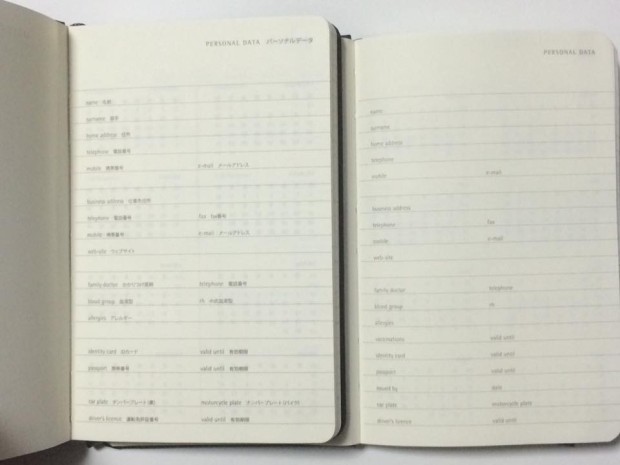 PERSONAL DATA パーソナルデータ
name 名前
surname 苗字
home address 住所
telephone 電話番号
mobile 携帯番号 e-mail メールアドレス
business address 仕事先住所
telephone 電話番号 fax fax番号
mobile 携帯番号 e-mail メールアドレス
web-site ウェブサイト
family doctor かかりつけ医師 telephone 電話番号
blood group 血液型 rh rh式血液型
allergies アレルギー
identity card IDカード valid until 有効期限
passport 旅券番号 valid until 有効期限
car plate ナンバープレート(車) motorcycle plate ナンバープレート(バイク)
driver's licence 運転免許証番号 valid until 有効期限
PERSONAL DATA
name
surname
home address
telephone
mobile e-mail
business address
telephone fax
mobile e-mail
web-site
family doctor telephone
blood group rh
allergies
vaccinations valid until
identity card valid until
passport valid until
issued by date
car plate motorcycle plate
driver's licence valid until